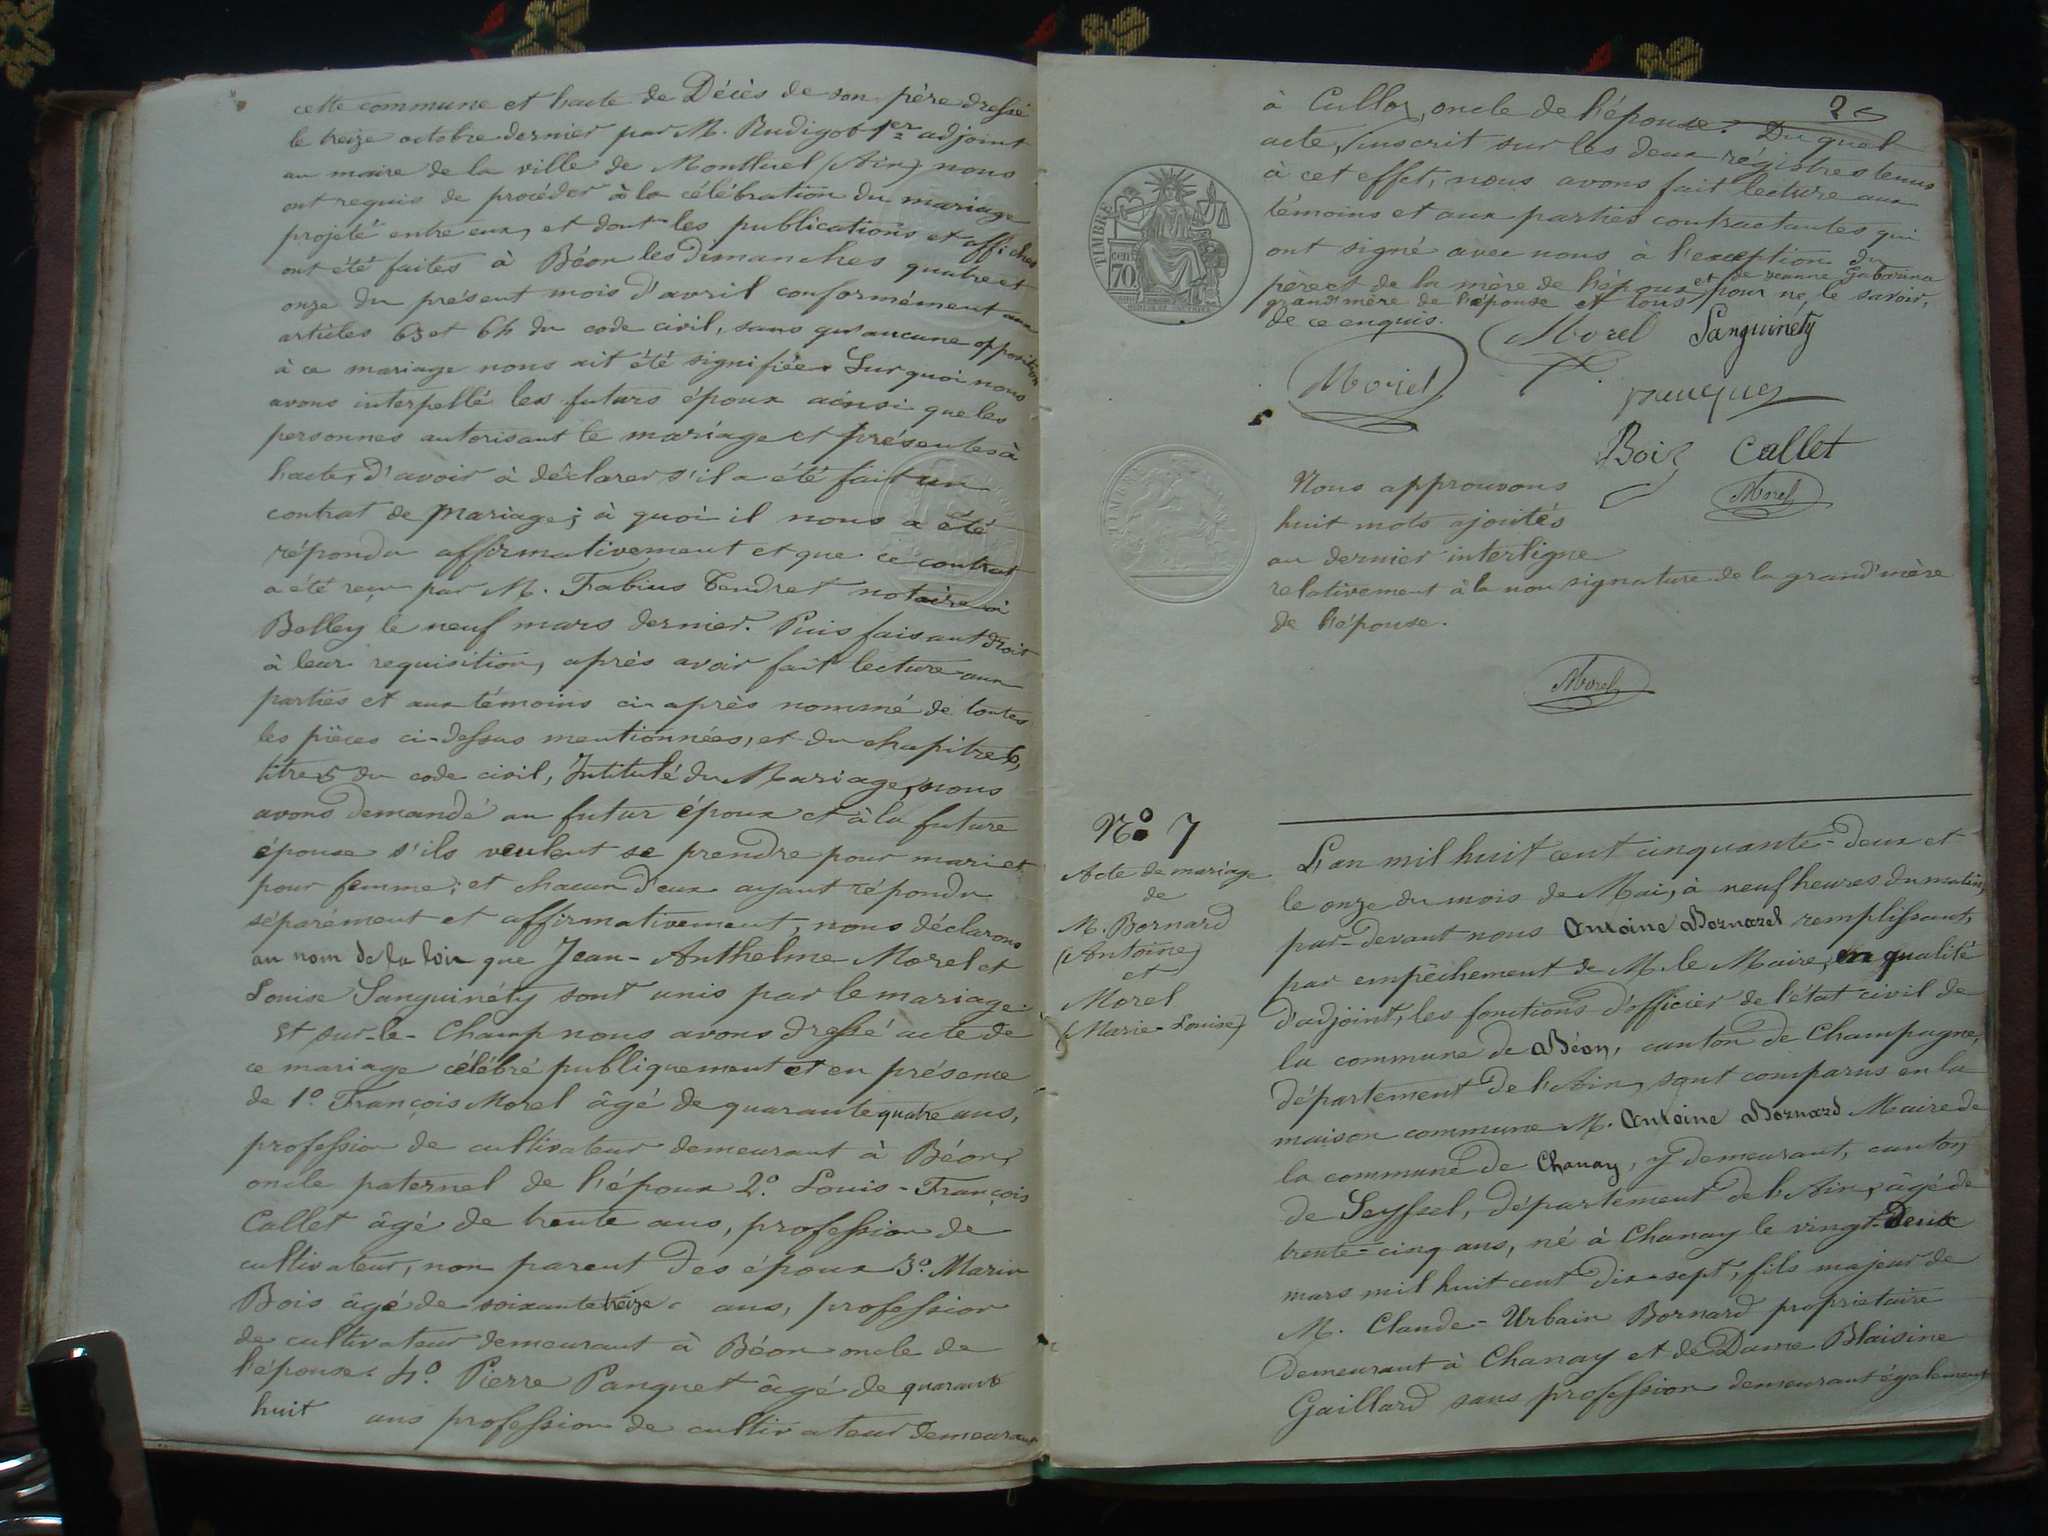 cette commune et l'acte de Décès de son père dressé
le treize octobre dernier par M. Rudigot 1er adjoint
au maire de la ville de Montluel (Ain) nous
ont requis de procéder à la célébration du mariage
projeté entre eux, et dont les publications et affiches
ont été faites à Béon les dimanches quatre et
onze du présent mois d'avril conformément aux
articles 63 et 64 du code civil, sans qu'aucune opposition
à ce mariage nous ait été signifiée. Sur quoi nous
avons interpellé les futurs époux ainsi que les
personnes autorisant le mariage et présentes à
l'acte, d'avoir à déclarer s'il a été fait un
contrat de mariage; à quoi il nous a été
répondu affirmativement et que ce contrat
a été reçu par M. Fabius Tendret notaire à
Belley le neuf mars dernier. Puis faisant droit
à leur requisition, après avoir fait lecture aux
parties et aux témoins ci-après nommé de toutes
les pièces ci-dessus mentionnées, et du chapitre 6,
titre 5 du code civil, Intitulé du Mariage, nous
avons demandé au futur époux et à la future
épouse s'ils veulent se prendre pour mari et
pour femme; et chacun d'eux ayant répondu
séparément et affirmativement, nous déclarons
au nom de la loi que Jean-Anthelme Morel et
Louise Sanguinéty sont unis par le mariage.
Et sur-le-Champ nous avons dressé acte de
ce mariage célébré publiquement et en présence
de 1º François Morel âgé de quarante quatre ans,
profession de cultivateur demeurant à Béon,
oncle paternel de l'époux 2º. Louis-François
Callet âgé de trente ans, profession de
cultivateur, non parent des époux 3º. Marin
Bois âgé de soixante treize ans, profession
de cultivateur demeurant à Béon oncle de
l'épouse. 4º. Pierre Panquet âgé de quarante
huit ans profession de cultivateur demeurant
2
à Culloz, oncle de l'épouse. Du quel
acte, inscrit sur les deux régistres tenus
à cet effet, nous avons fait lecture aux
témoins et aux parties contractantes qui
ont signé avec nous à l'exception du
père et de la mère de l'époux et de Jeanne
grand'mère de l'épouse et tous pour ne le savoir,
de ce enquis.
TIMBRE
cen
70
Morel Sanguinéty
Morel
Bois Callet
Morel
Nous approuvons
huit mots ajoutés
au dernier interligne
relativement à la non signature de la grand'mère
de l'épouse.
Morel
Nº 7
Acte de mariage
de
M. Bornard
(Antoine)
et
Morel
(Marie-Louise)
L'an mil huit cent cinquante-deux et
le onze du mois de Mai, à neuf heures du matin,
par-devant nous Antoine Bornarel remplissant,
par empêchement de M. le Maire, en qualité
d'adjoint, les fonctions d'officier de l'état civil de
la commune de Béon, canton de Champagne,
département de l'Ain, sont comparus en la
maison commune M. Antoine Bornard Maire de
la commune de Chanay, y demeurant, canton
de Seyssel, département de l'Ain, âgé de
trente-cinq ans, né à Chanay le vingt-deux
mars mil huit cent dix-sept, fils majeur de
M. Claude-Urbain Bornard proprietaire
demeurant à Chanay et de Dame Blaisine
Gaillard sans profession demeurant également